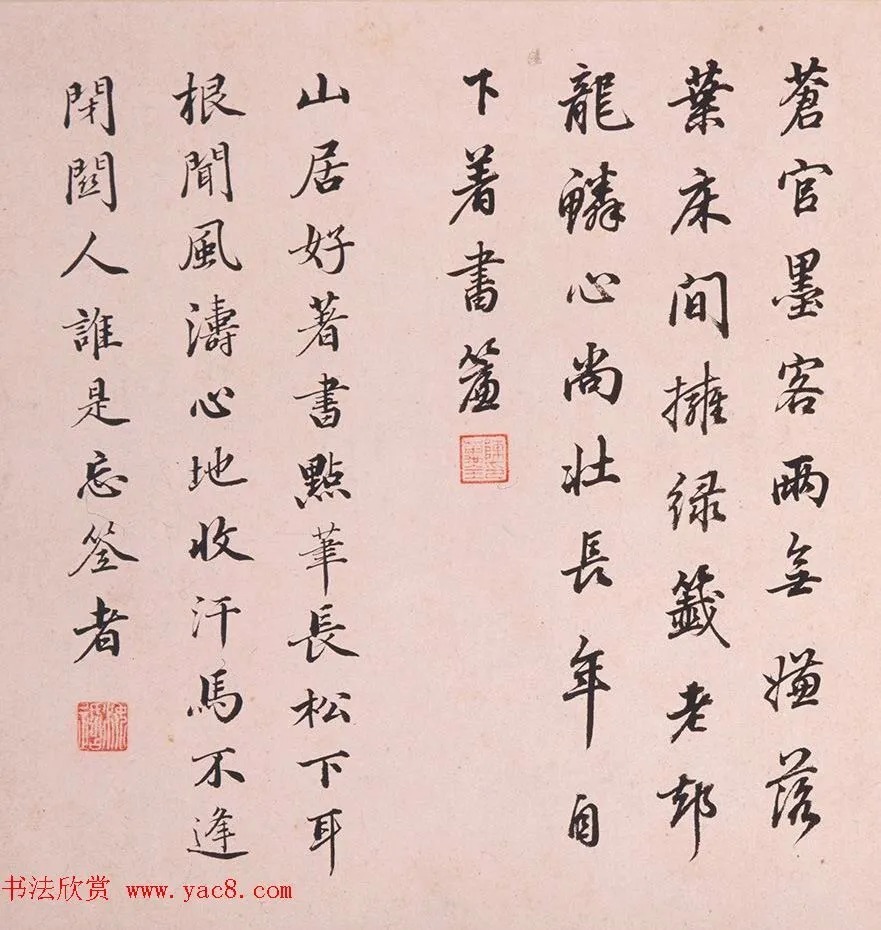 蒼官墨客兩無嫌落
葉床間擁綠籤老却
龍鱗心尚壯長年自
下著書簾
山居好著書點筆長松下耳
根聞風濤心地收汗馬不逢
閉關人誰是忘筌者
书法欣赏 www.yac8.com